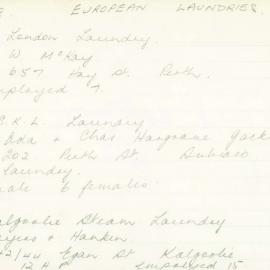 EUROPEAN LAUNDRIES.
London Laundry.
W McKay
657 Hay St. Perth.
mployed 7.
K. L Laundry
Ada & Chas Hargrave Jack
202 Perth St. Subiaco
Laundry.
ale 6 females.
algoorlie Steam Laundry
& Hanken
42/44 Egan St Kalgoorlie
12 H.P. employed 15